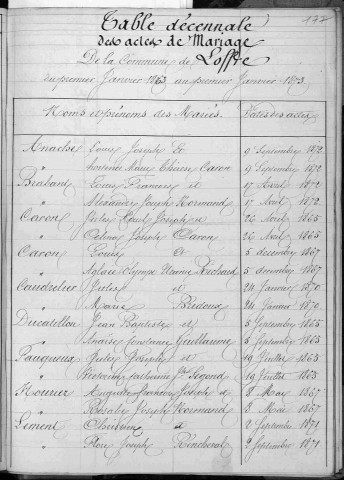 177
Table décennale
des actes de Mariage
De la Commune de Loffre
du premier Janvier 1863 au premier Janvier 1873
Noms et prénoms des Mariés. Dates des actes
Anache Louis Joseph et 9 Septembre 1872
" hortense Marie Thérèse Caron 9 Septembre 1872
Brabant Louis François et 17 Avril 1872
" Alexandrine Joseph Normand 17 Avril 1872
Caron Jules Paul Joseph et 26 Avril 1865
" Odine Joseph Caron 26 Avril 1865
Caron Louis et 5 décembre 1867
" Aglaée Olympe Richard 5 décembre 1867
Caudrelier Jules et 24 Janvier 1870
" Marie Bridoux 24 Janvier 1870
Ducatillon Jean Baptiste et 5 Septembre 1865
" Constance Guillaume 5 Septembre 1865
Jules Joseph et 19 Juillet 1865
" Segond 19 Juillet 1865
Hourier Auguste François Joseph et 8 Mai 1867
" Rosalie Joseph Normand 8 Mai 1867
Lement Chrétien et 2 Septembre 1871
" Flore Joseph Rincheval 2 Septembre 1871